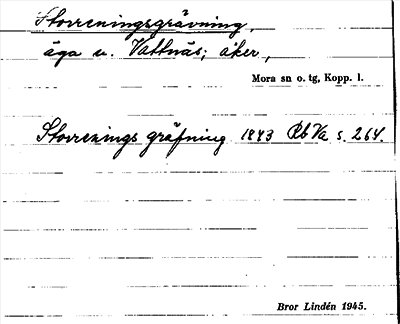 Storreningsgrävning,
äga u. Vattnäs; åker,
Mora sn o. tg, Kopp. l.
Storrenings gräfning 1843 Rb Va s. 264.
Bror Lindén 1945.